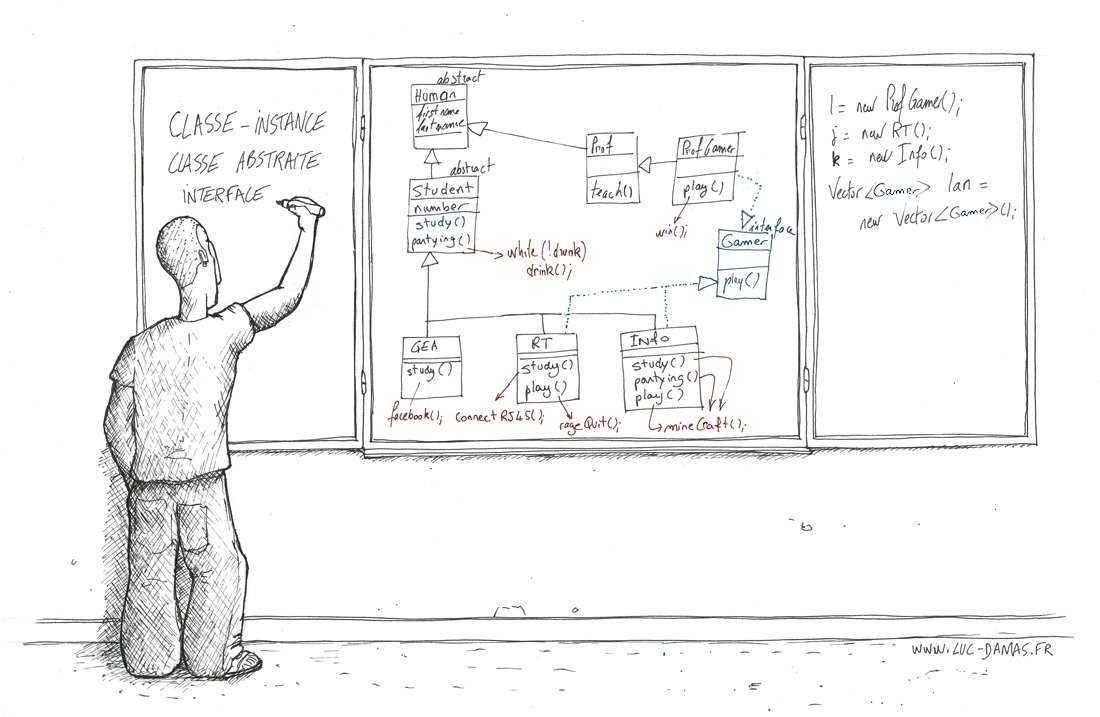 CLASSE-INSTANCE
CLASSE ABSTRAITE
INTERFACE
abstract
Human
firstname
lastname
abstract
Student
number
study()
partying()
while (!drunk)
drink();
Prof
teach()
ProfGamer
play()
win();
interface
Gamer
play()
GEA
study()
facebook();
RT
study()
play()
connectRJ45();
rageQuit();
Info
study()
partying()
play()
mineCraft();
l = new ProfGamer();
j = new RT();
k = new Info();
Vector<Gamer> lan =
new Vector<Gamer>();
WWW.LUC-DAMAS.FR